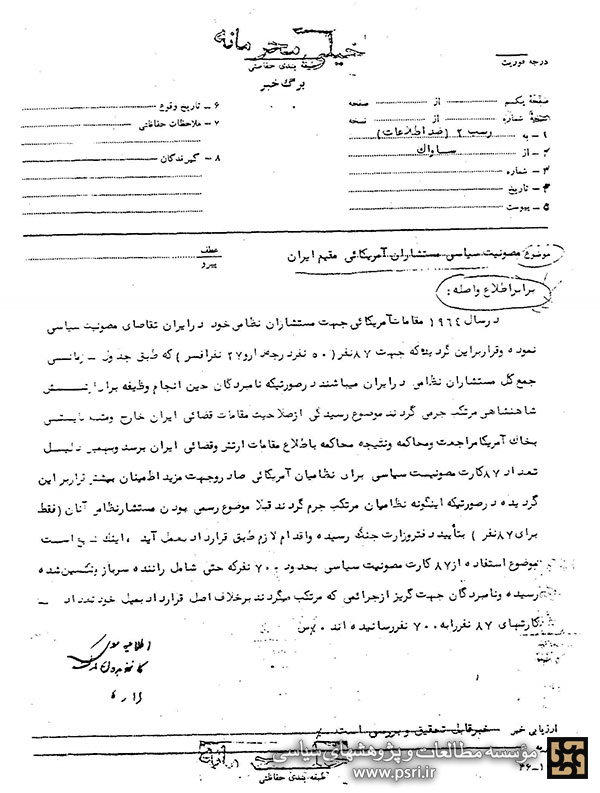 خیلی محرمانه
طبقه بندی حفاظتی
برگ خبر
درجه فوریت
صفحهٔ یکم از صفحه
نسخهٔ شماره از نسخه
۱ - به رسب ۲ (ضد اطلاعات)
۲ - از ساواک
۳ - شماره
۴ - تاریخ
۵ - پیوست
۶ - تاریخ وقوع
۷ - ملاحظات حفاظتی
۸ - گیرندگان
موضوع مصونیت سیاسی مستشاران آمریکائی مقیم ایران
عطف
پیرو
برابر اطلاع واصله :
در سال ۱۹٦٤ مقامات آمریکائی جهت مستشاران نظامی خود در ایران تقاضای مصونیت سیاسی
نموده و قرار بر این گردیده که جهت ۸۷ نفر (۵۰ نفر درجه دار و ۲۷ نفر افسر) که طبق جدول
جمع کل مستشاران نظامی در ایران میباشند در صورتیکه نامبردگان حین انجام وظیفه برای ارتش
شاهنشاهی مرتکب جرمی گردند موضوع رسیدگی از صلاحیت مقامات قضائی ایران خارج و
بخاک آمریکا مراجعت و محاکمه و نتیجه محاکمه باطلاع مقامات ارتش و قضائی ایران برسد
تعداد ۸۷ کارت مصونیت سیاسی برای نظامیان آمریکائی صادر و جهت مزید اطمینان بیشتر قرار بر این
گردیده در صورتیکه اینگونه نظامیان مرتکب جرم گردند قبلا موضوع رسمی بودن مستشار نظامی آنان (فقط
برای ۸۷ نفر) بتأیید دفتر وزارت جنگ رسیده و اقدام لازم طبق قرارداد بعمل آید ، اینک است
موضوع استفاده از ۸۷ کارت مصونیت سیاسی بحدود ۷۰۰ نفر که حتی شامل راننده سرباز شده
رسیده و نامبردگان جهت گریز از جرائمی که مرتکب میگردند برخلاف اصل قرارداد بعمل خود تعداد
کارتهای ۸۷ نفر را به ۷۰۰ نفر رسانیده اند
ارزیابی خبر خبر قابل تحقیق و بررسی است
طبقه بندی حفاظتی
۳۶-۱
مؤسسه مطالعات و پژوهشهای سیاسی
www.psri.ir